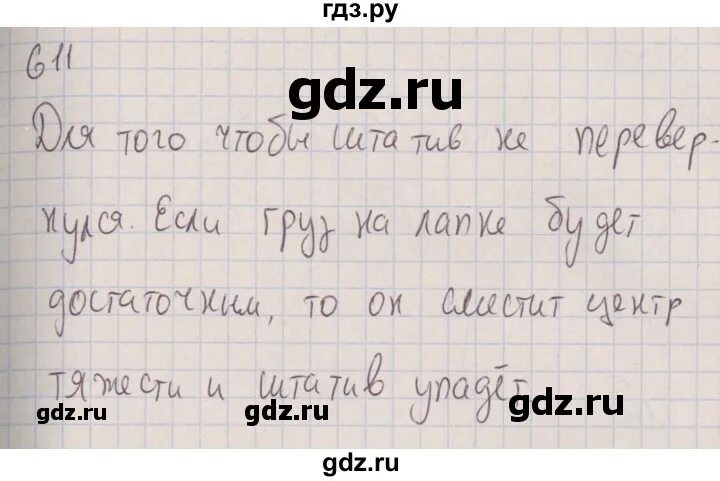 гдз.ру
611
gdz.ru
Для того чтобы штатив не перевер-
нулся. Если груз на лапке будет
достаточным, то он сместит центр
тяжести и штатив упадёт
gdz.ru
gdz.ru
gdz.ru
gdz.ru